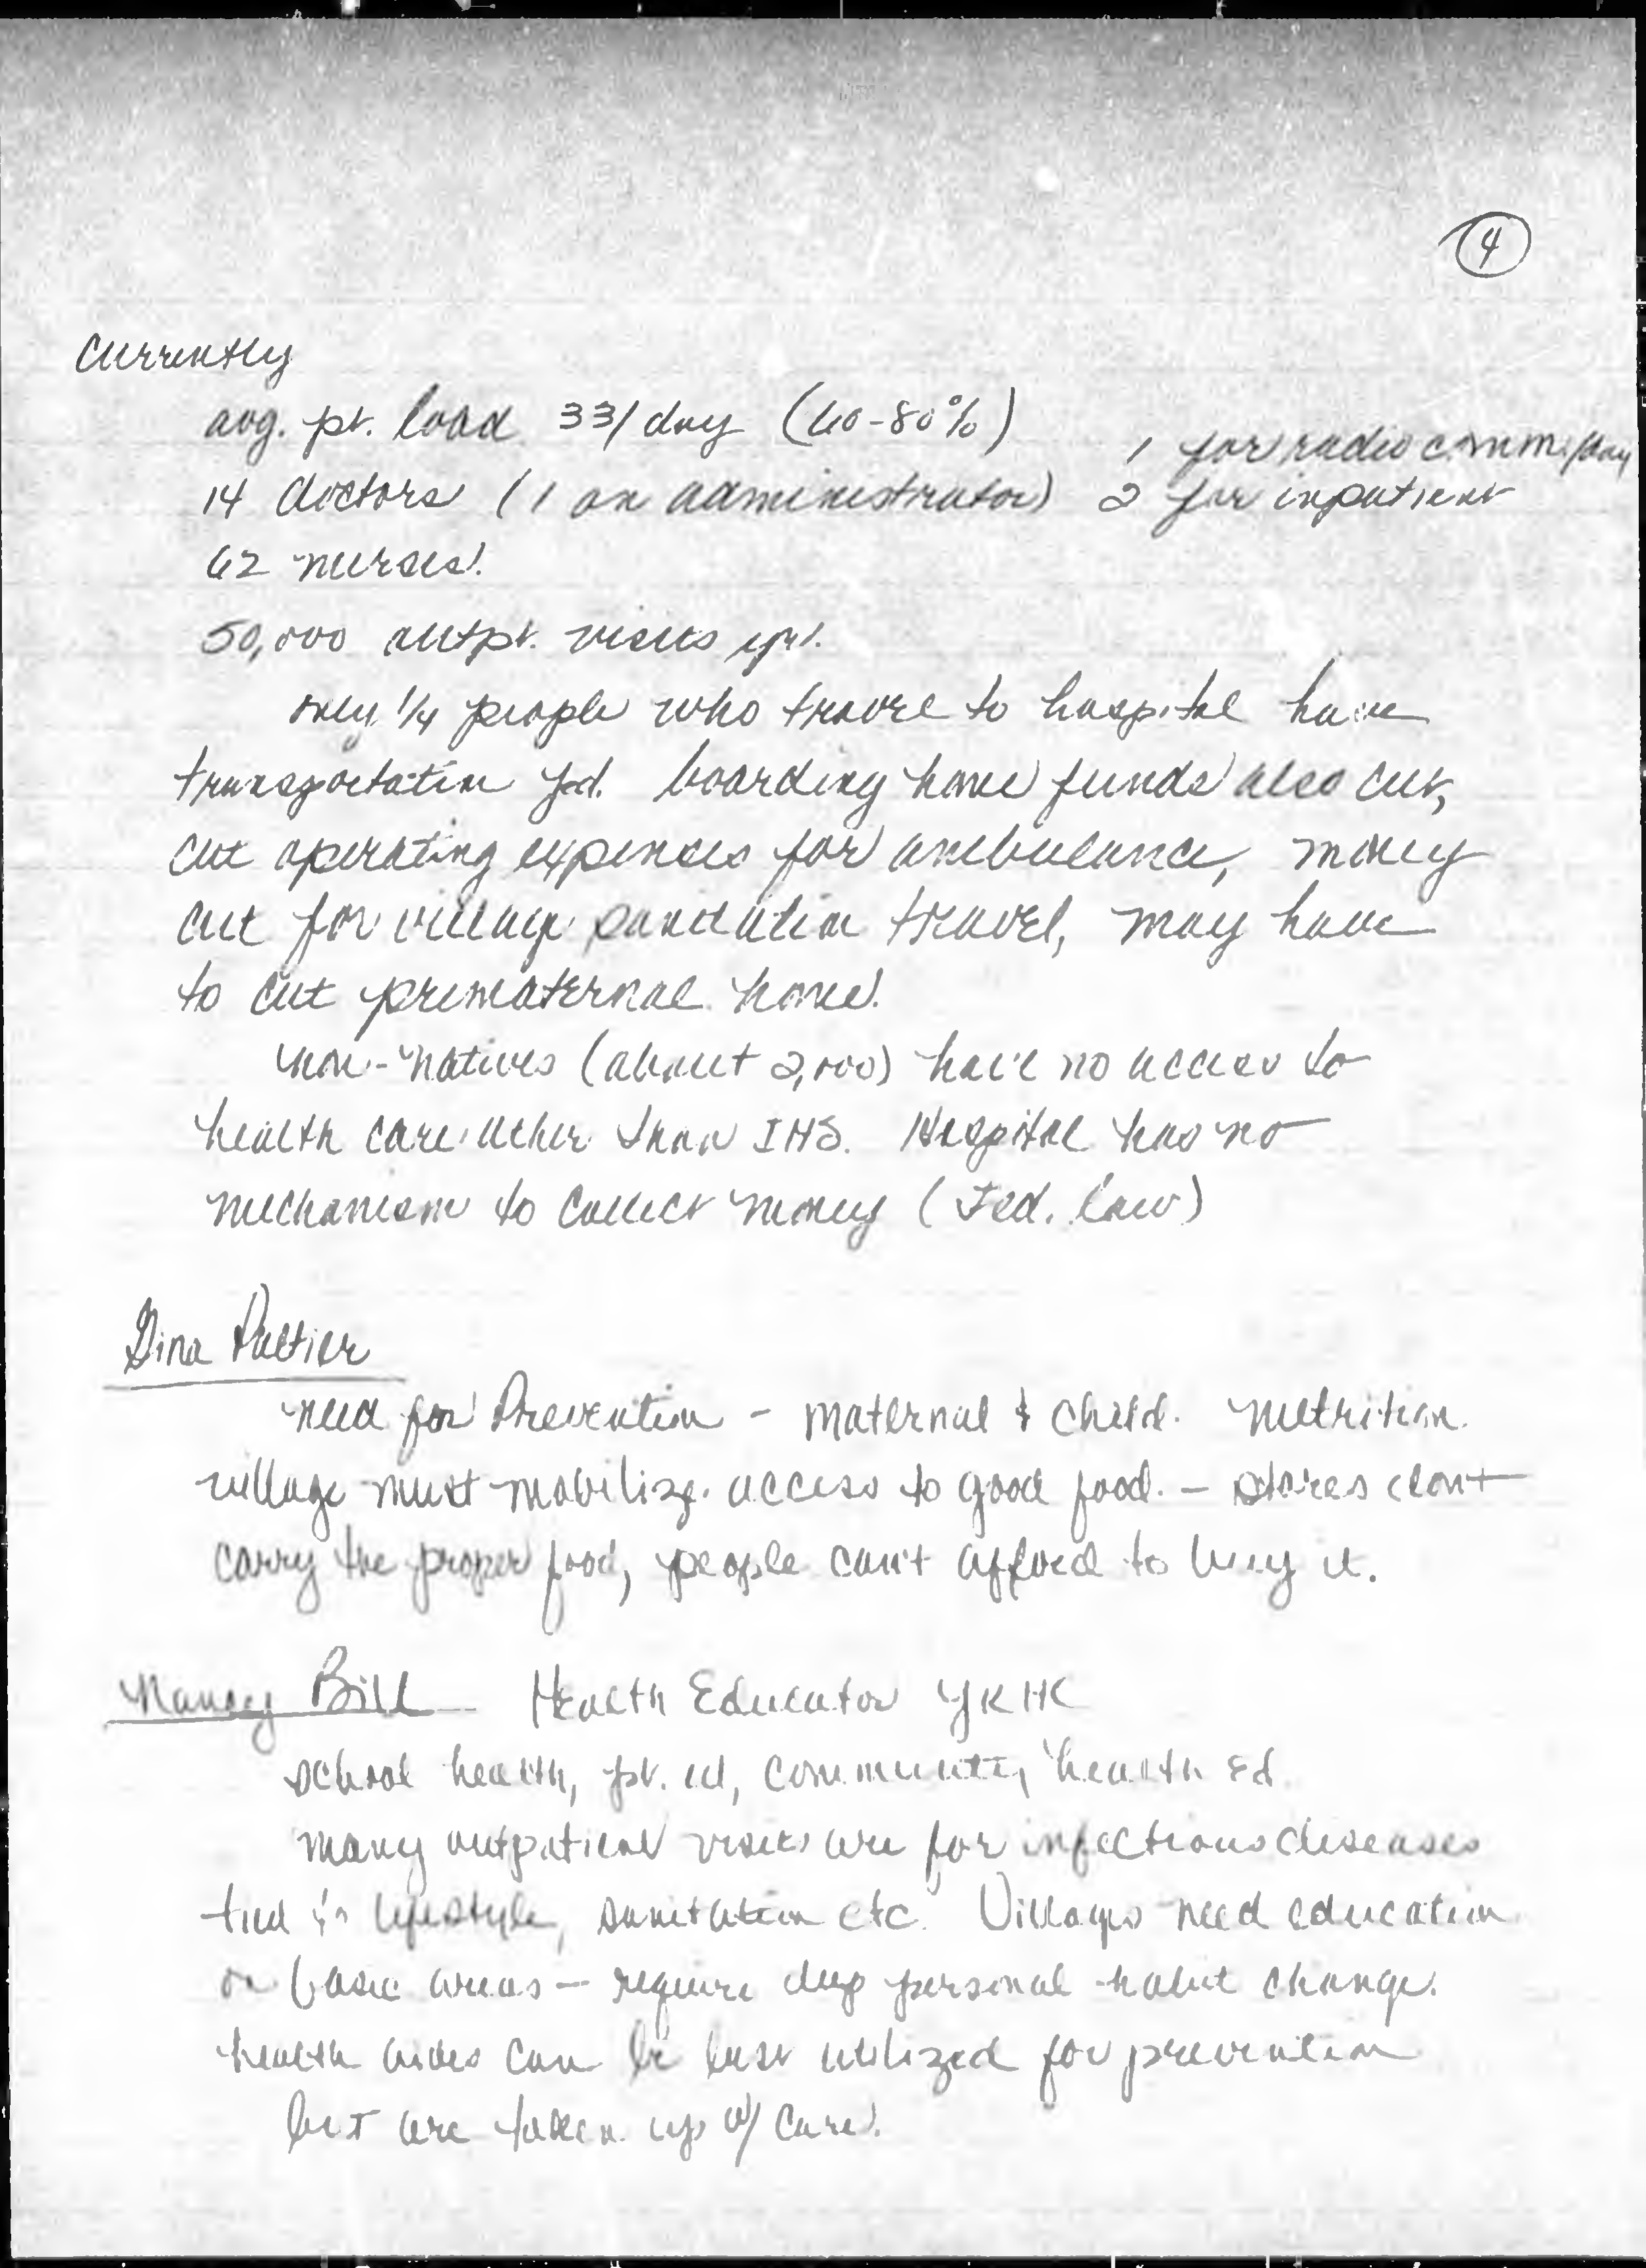 4
Currently
avg. pt. load 33/day (60-80%)
1 for radio comm./day
14 doctors (1 an administrator) 2 for inpatient
62 nurses.
50,000 outpt. visits yr.
only 1/4 people who travel to hospital have
transportation pd. boarding home funds also cut,
cut operating expenses for ambulance, money
cut for village sanitation travel, may have
to cut prematernal home.
non-natives (about 2,000) have no access to
health care other than IHS. Hospital has no
mechanism to collect money (Fed. law)
Gina
need for Prevention - maternal & child. nutrition.
village must mobilize. access to good food. - stores dont
carry the proper food, people can't afford to buy it.
Nancy Bill - Health Educator YKHC
school health, pt. ed, community health Ed.
many outpatient visits are for infectious diseases
tied to lifestyle, sanitation etc. Villages need education
on basic areas - require deep personal habit change.
health aides can be best utilized for prevention
but are taken up w/ care.